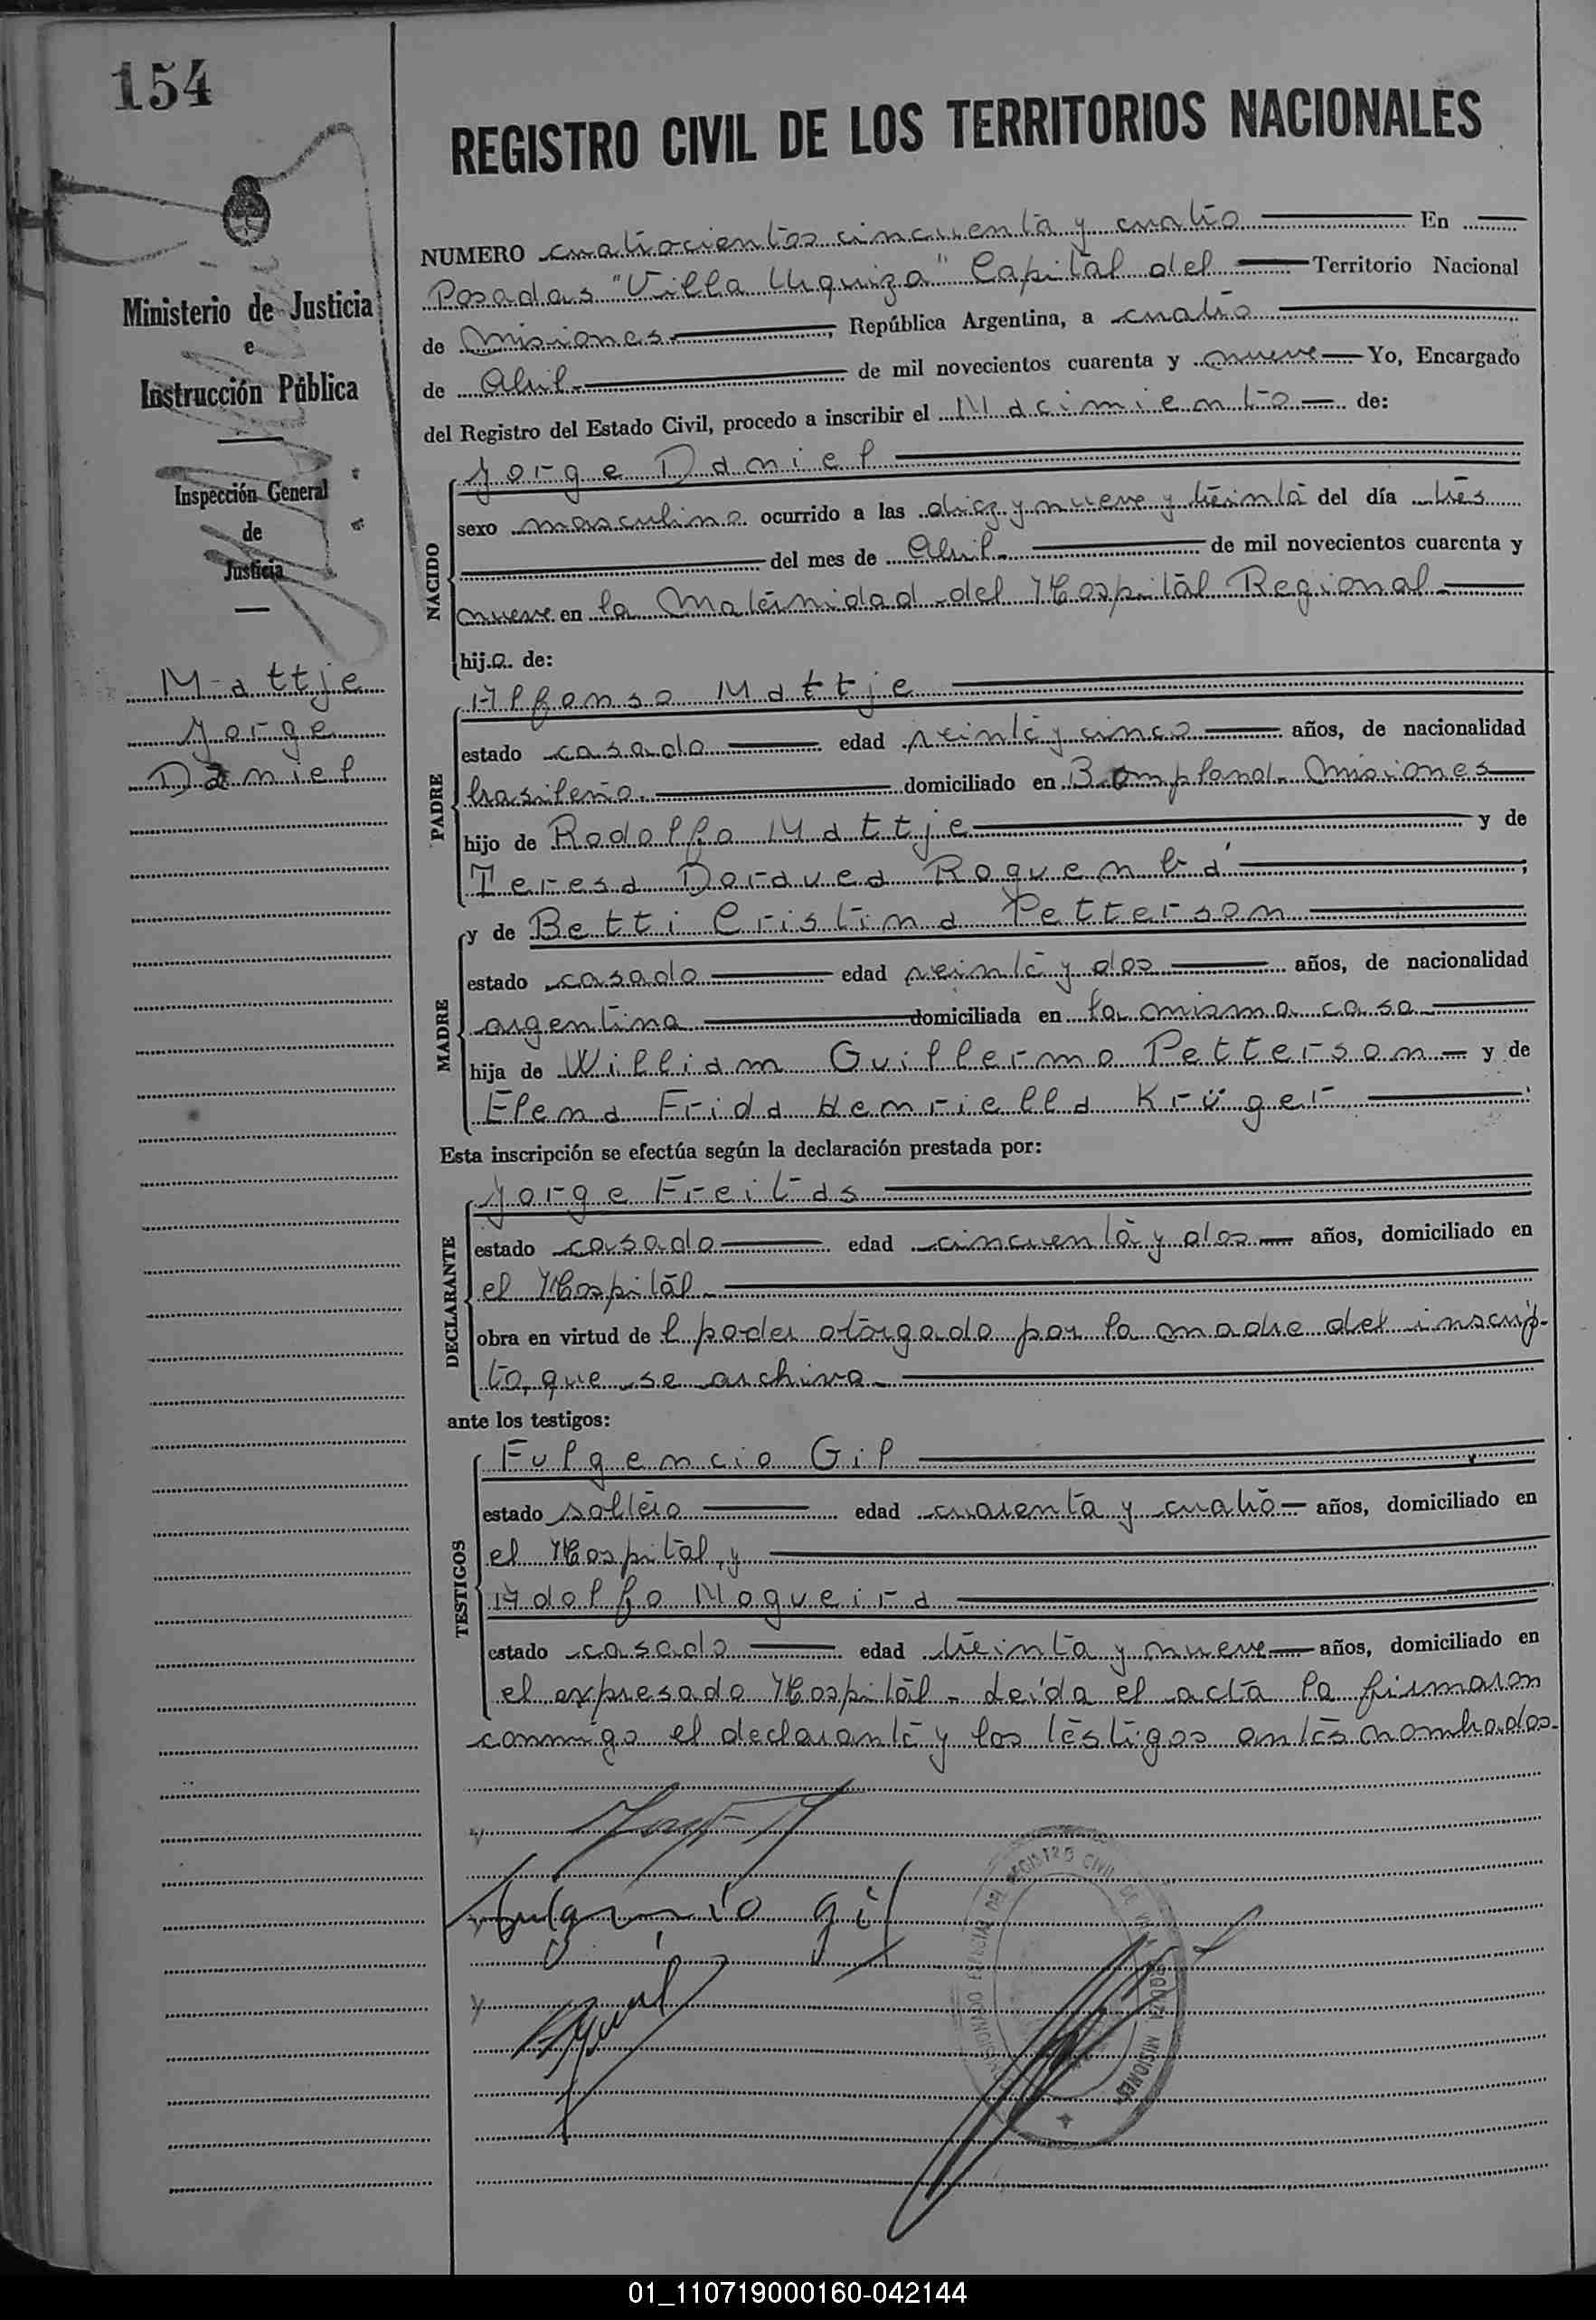 154
REGISTRO CIVIL DE LOS TERRITORIOS NACIONALES
Ministerio de Justicia
e
Instrucción Pública
Inspección General
de
Justicia
Mattje
Jorge
Daniel
NUMERO cuatrocientos cincuenta y cuatro En
Posadas "Villa Urquiza" Capital del Territorio Nacional
de Misiones, República Argentina, a cuatro
de Abril de mil novecientos cuarenta y nueve Yo, Encargado
del Registro del Estado Civil, procedo a inscribir el Nacimiento de:
NACIDO
Jorge Daniel
sexo masculino ocurrido a las diez y nueve y treinta del día tres
del mes de Abril de mil novecientos cuarenta y
nueve en la Maternidad del Hospital Regional
hijo de:
PADRE
Alfonso Mattje
estado casado edad veinte y cinco años, de nacionalidad
brasileña domiciliado en Bompland. Misiones
hijo de Rodolfo Mattje y de
Teresa Doravea Roquembá;
MADRE
y de Betti Cristina Petterson
estado casada edad veinte y dos años, de nacionalidad
argentina domiciliada en la misma casa
hija de William Guillermo Petterson y de
Elena Frida Henriella Krüger:
Esta inscripción se efectúa según la declaración prestada por:
DECLARANTE
Jorge Freitas
estado casado edad cincuenta y dos años, domiciliado en
el Hospital
obra en virtud de l poder otorgado por la madre del inscrip-
to, que se archiva
ante los testigos:
TESTIGOS
Fulgencio Gil
estado soltero edad cuarenta y cuatro años, domiciliado en
el Hospital, y
Adolfo Nogueira
estado casado edad treinta y nueve años, domiciliado en
el expresado Hospital. Leída el acta la firmaron
conmigo el declarante y los testigos antes nombrados.
Fulgencio Gil
REGISTRO CIVIL DE VILLA URQUIZA MISIONES
01_110719000160-042144